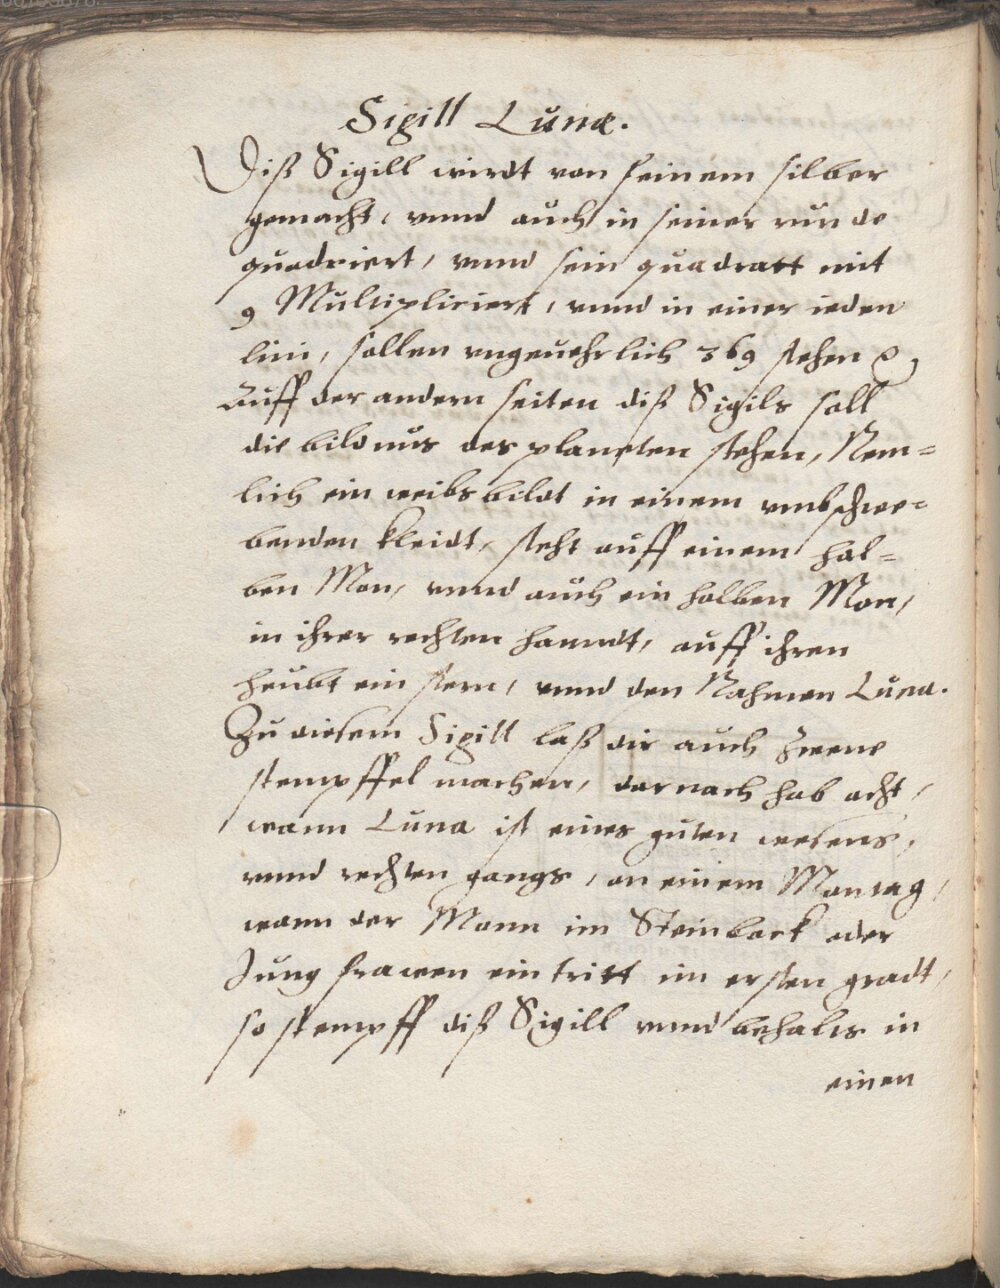 Sigill Lunæ.
Diß Sigill wirdt von feinem silber
gemacht, vnnd auch in seiner runde
quadriert, vnnd sein quadratt mit
9 Multipliciert, vnnd in einer ieden
lini, sollen vngeuehrlich 369 stehen
Auff der andern seiten diß Sigils soll
die bildnus des planeten stehen, Nem=
lich ein weibsbildt in einem vmbschwe=
benden kleidt, steht auff einem hal=
ben Mon, vnnd auch ein halben Mon,
in ihrer rechten hanndt, auff ihren
heubt ein stern, vnnd den Nahmen Luna.
Zu diesem Sigill laß dir auch zwene
stempffel machen, darnach hab acht,
wann Luna ist eines guten wesens,
vnnd rechten gangs, an einem Montag,
wann der Monn im Steinbock oder
Jungfrawen eintritt im ersten gradt,
so stempff diß Sigill vnnd behalts in
einen